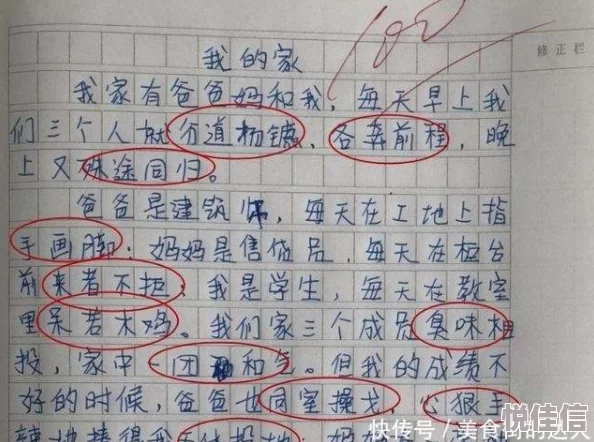 100
修正栏
我的家
我家有爸爸妈和我，每天早上我
们三个人就分道扬镳，各奔前程，晚
上又殊途同归。
爸爸是建筑师，每天在工地上指
手画脚；妈妈是售货员，每天在柜台
前来者不拒；我是学生，每天在教室
里呆若木鸡。我们家三个成员臭味相
投，家中一团和气。但我的成绩不
好的时候，爸爸也同室操戈，心狠手
辣地揍得我五体投地；妈妈
快传号/美食
悦佳信